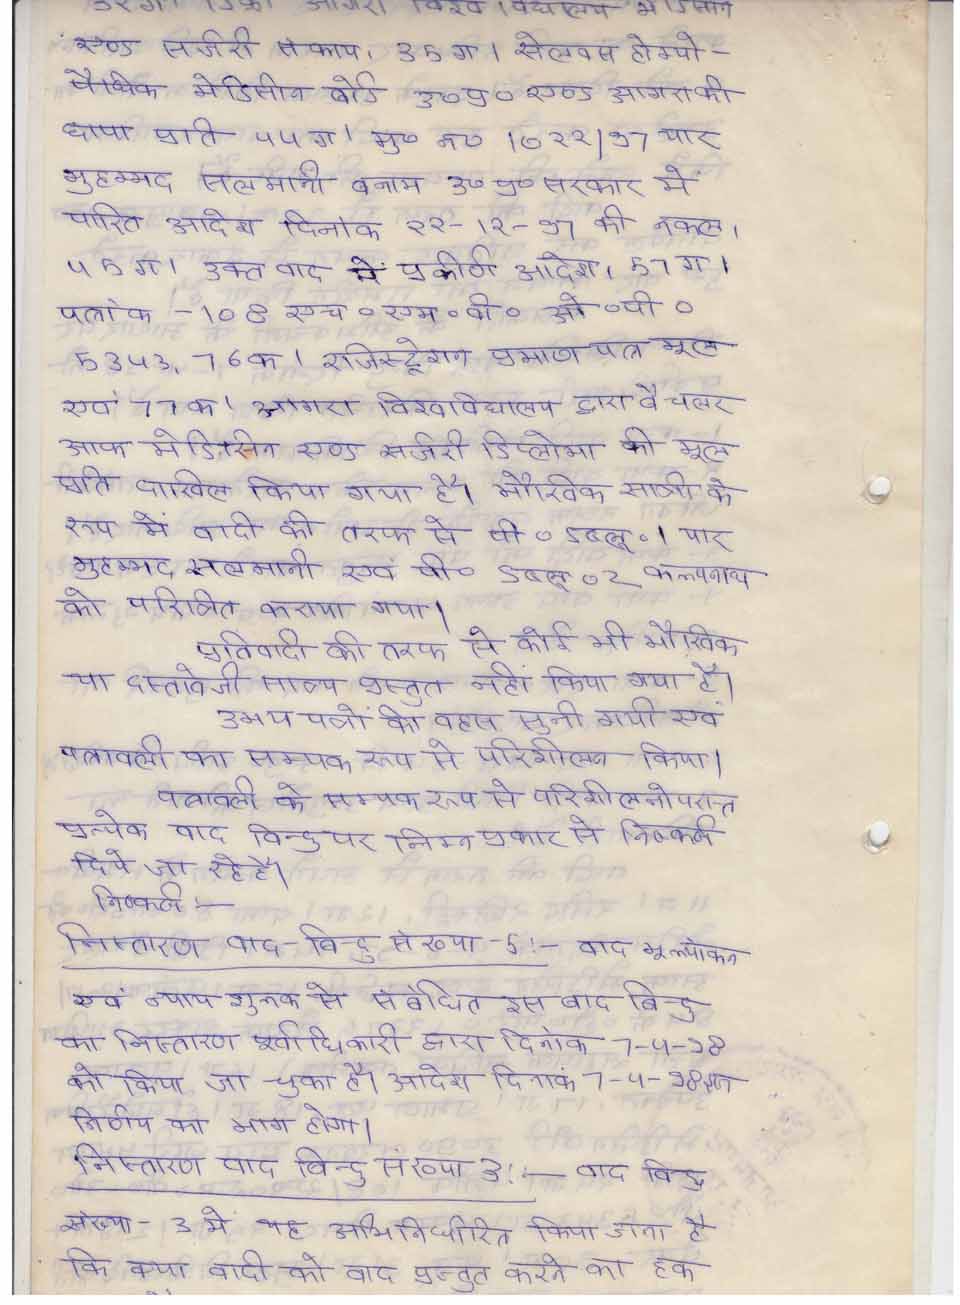 आगरा विश्व विद्यालय मेडिसीन
एण्ड सर्जरी संकाय, 35ग। सेलबस होम्यो-
पैथिक मेडिसीन बोर्ड उ०प्र० एण्ड आगरा की
छाया प्रति 44ग। मु० न० 1022/97 यार
मुहम्मद सलमानी बनाम उ० प्र० सरकार में
पारित आदेश दिनांक 22-12-97 की नकल,
45ग। उक्त वाद में प्रकीर्ण आदेश, 57ग।
पत्रांक -108 एच०एम०बी० ओ०पी०
5343, 76क। रजिस्ट्रेशन प्रमाण पत्र मूल
एवं 77क। आगरा विश्वविद्यालय द्वारा बैचलर
आफ मेडिसिन एण्ड सर्जरी डिप्लोमा की मूल
प्रति दाखिल किया गया है। मौखिक साक्षी के
रूप में वादी की तरफ से पी० डब्लू०1 यार
मुहम्मद सलमानी एवं पी० डब्लू०2 कल्पनाथ
को परिक्षित कराया गया।
प्रतिवादी की तरफ से कोई भी मौखिक
या दस्तावेजी साक्ष्य प्रस्तुत नहीं किया गया है।
उभय पक्षों की वहस सुनी गयी एवं
पत्रावली का सम्यक रूप से परिशीलन किया।
पत्रावली के सम्यक रूप से परिशीलनोपरान्त
प्रत्येक वाद विन्दु पर निम्न प्रकार से निष्कर्ष
दिये जा रहे है।
निष्कर्ष :-
निस्तारण वाद-विन्दु संख्या-5:- वाद मूल्यांकन
एवं न्याय शुल्क से संबंधित इस वाद विन्दु
का निस्तारण पूर्वाधिकारी द्वारा दिनांक 7-4-98
को किया जा चुका है। आदेश दिनांक 7-4-98 इस
निर्णय का भाग होगा।
निस्तारण वाद विन्दु संख्या 3:- वाद विन्दु
संख्या-3 में यह अभिनिर्धारित किया जाना है
कि क्या वादी को वाद प्रस्तुत करने का हक